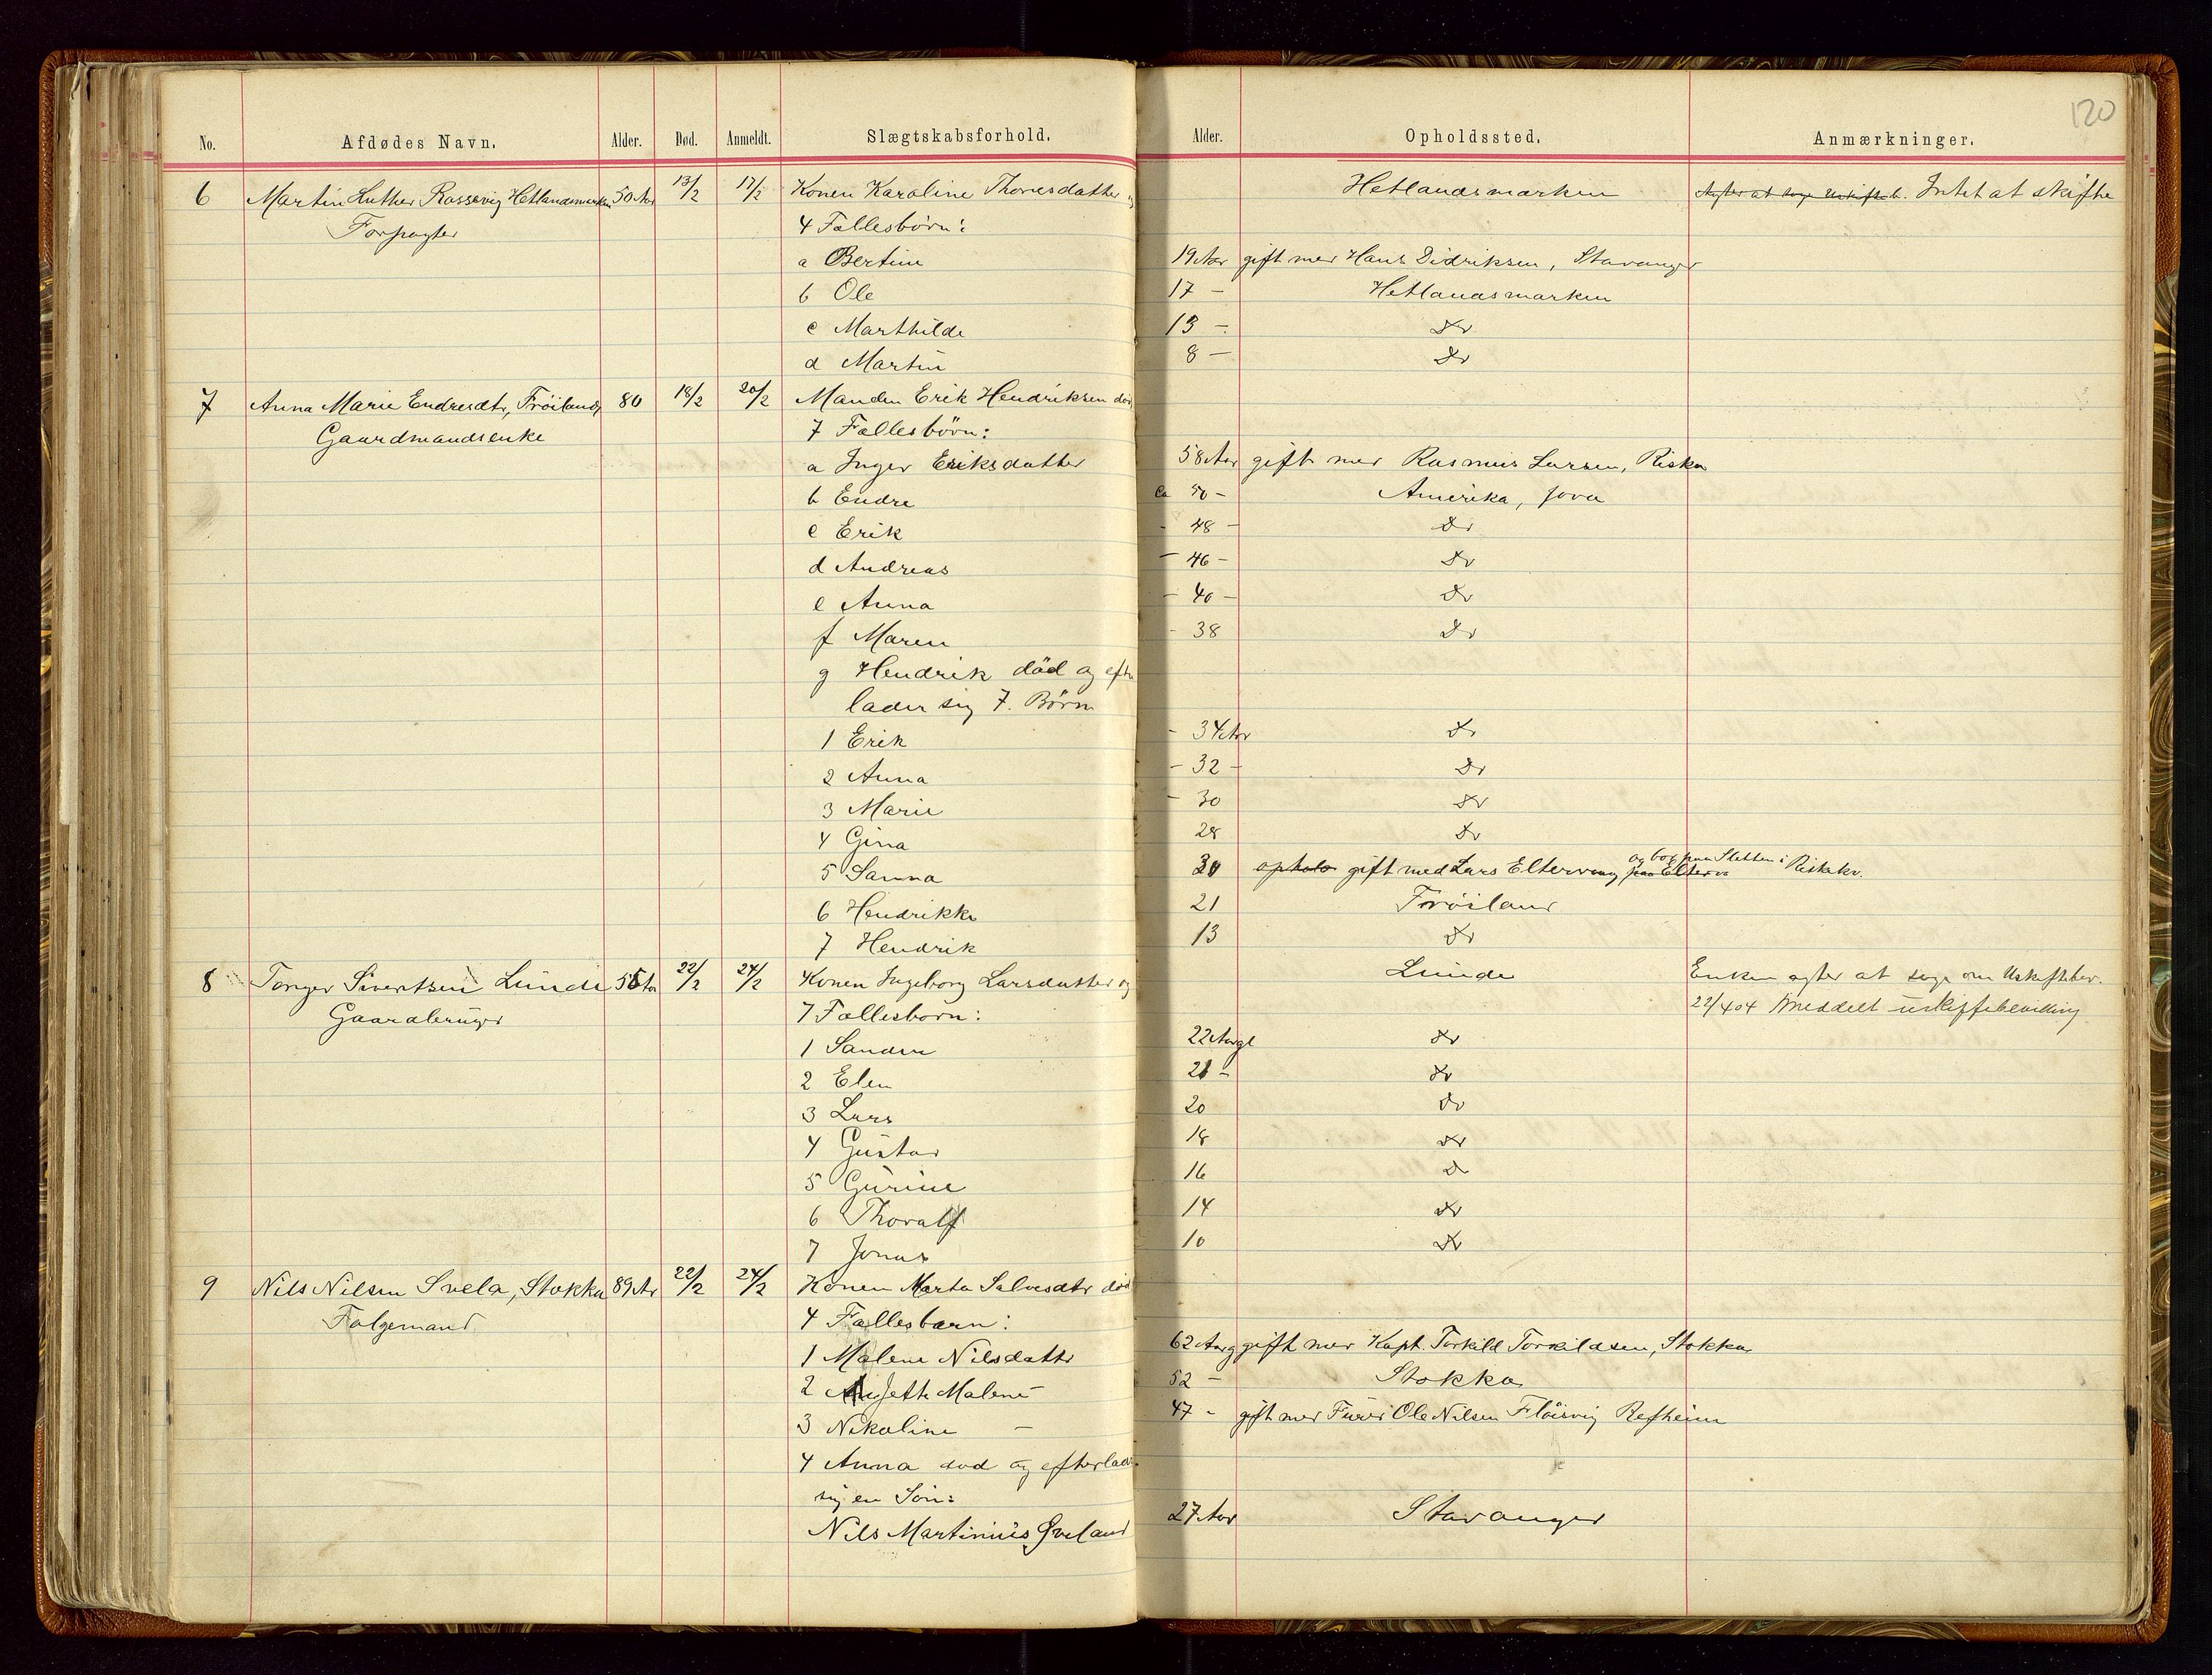 120
No. Afdødes Navn. Alder. Død. Anmeldt. Slægtskabsforhold. Alder. Opholdssted. Anmærkninger.
6 Martin Luther Rossevig Hetlandsmarken 50 Aar 13/2 17/2 Konen Karoline Thoresdatter og Hetlandsmarken Agter at søge Uskifteb. Intet at skifte
Forpagter 4 Fællesbörn:
a Bertine 19 Aar gift med Hans Didriksen, Stavanger
b Ole 17 - Hetlandsmarken
c Marthilde 13 - Do
d Martin 8 - Do
7 Anna Marie Endresdtr, Fröiland 80 18/2 20/2 Manden Erik Hendriksen död
Gaardmandsenke 7 Fællesbörn:
a Inger Eriksdatter 58 Aar gift med Rasmus Larsen, Riska
b Endre ca 50 - Amerika, Jova
c Erik - 48 - Do
d Andreas - 46 - Do
e Anna - 40 - Do
f Maren - 38 Do
g Hendrik död og efter
lader sig 7. Börn
1 Erik - 34 Aar Do
2 Anna - 32 - Do
3 Marie - 30 Do
4 Gina 28 Do
og bor paa Sletten i
5 Sanna 30 opholo gift med Lars Eltervaag paa Elterv Riskekv.
6 Hendrikke 21 Fröiland
7 Hendrik 13 Do
8 Tönger Sivertsen Lunde 55 Aa 22/2 24/2 Konen Ingeborg Larsdatter og Lunde Enken agter at søge om Uskiftebev.
Gaardbruger 7 Fællesbörn: 22/4 04 meddelt uskiftebevilling
1 Sander 22 Aar gl Do
2 Elen 21 - Do
3 Lars 20 Do
4 Gustav 18 Do
5 Gurine 16 Do
6 Thoralf 14 Do
7 Jonas 10 Do
9 Nils Nilsen Svela, Stokka 89 Ar 22/2 24/2 Konen Marta Salvesdtr död
Folgemand 4 Fællesbørn:
1 Malene Nilsdattr 62 Aar g gift med Kapt. Torkild Torkildsen, Stokka
2 Anjette Malene - 52 - Stokka
3 Nikoline - 47 - gift med Furer Ole Nilsen Flöisvig Refheim
4 Anna död og efterlader
sig en Sön:
Nils Martinius Sveland 27 Aar Stavanger